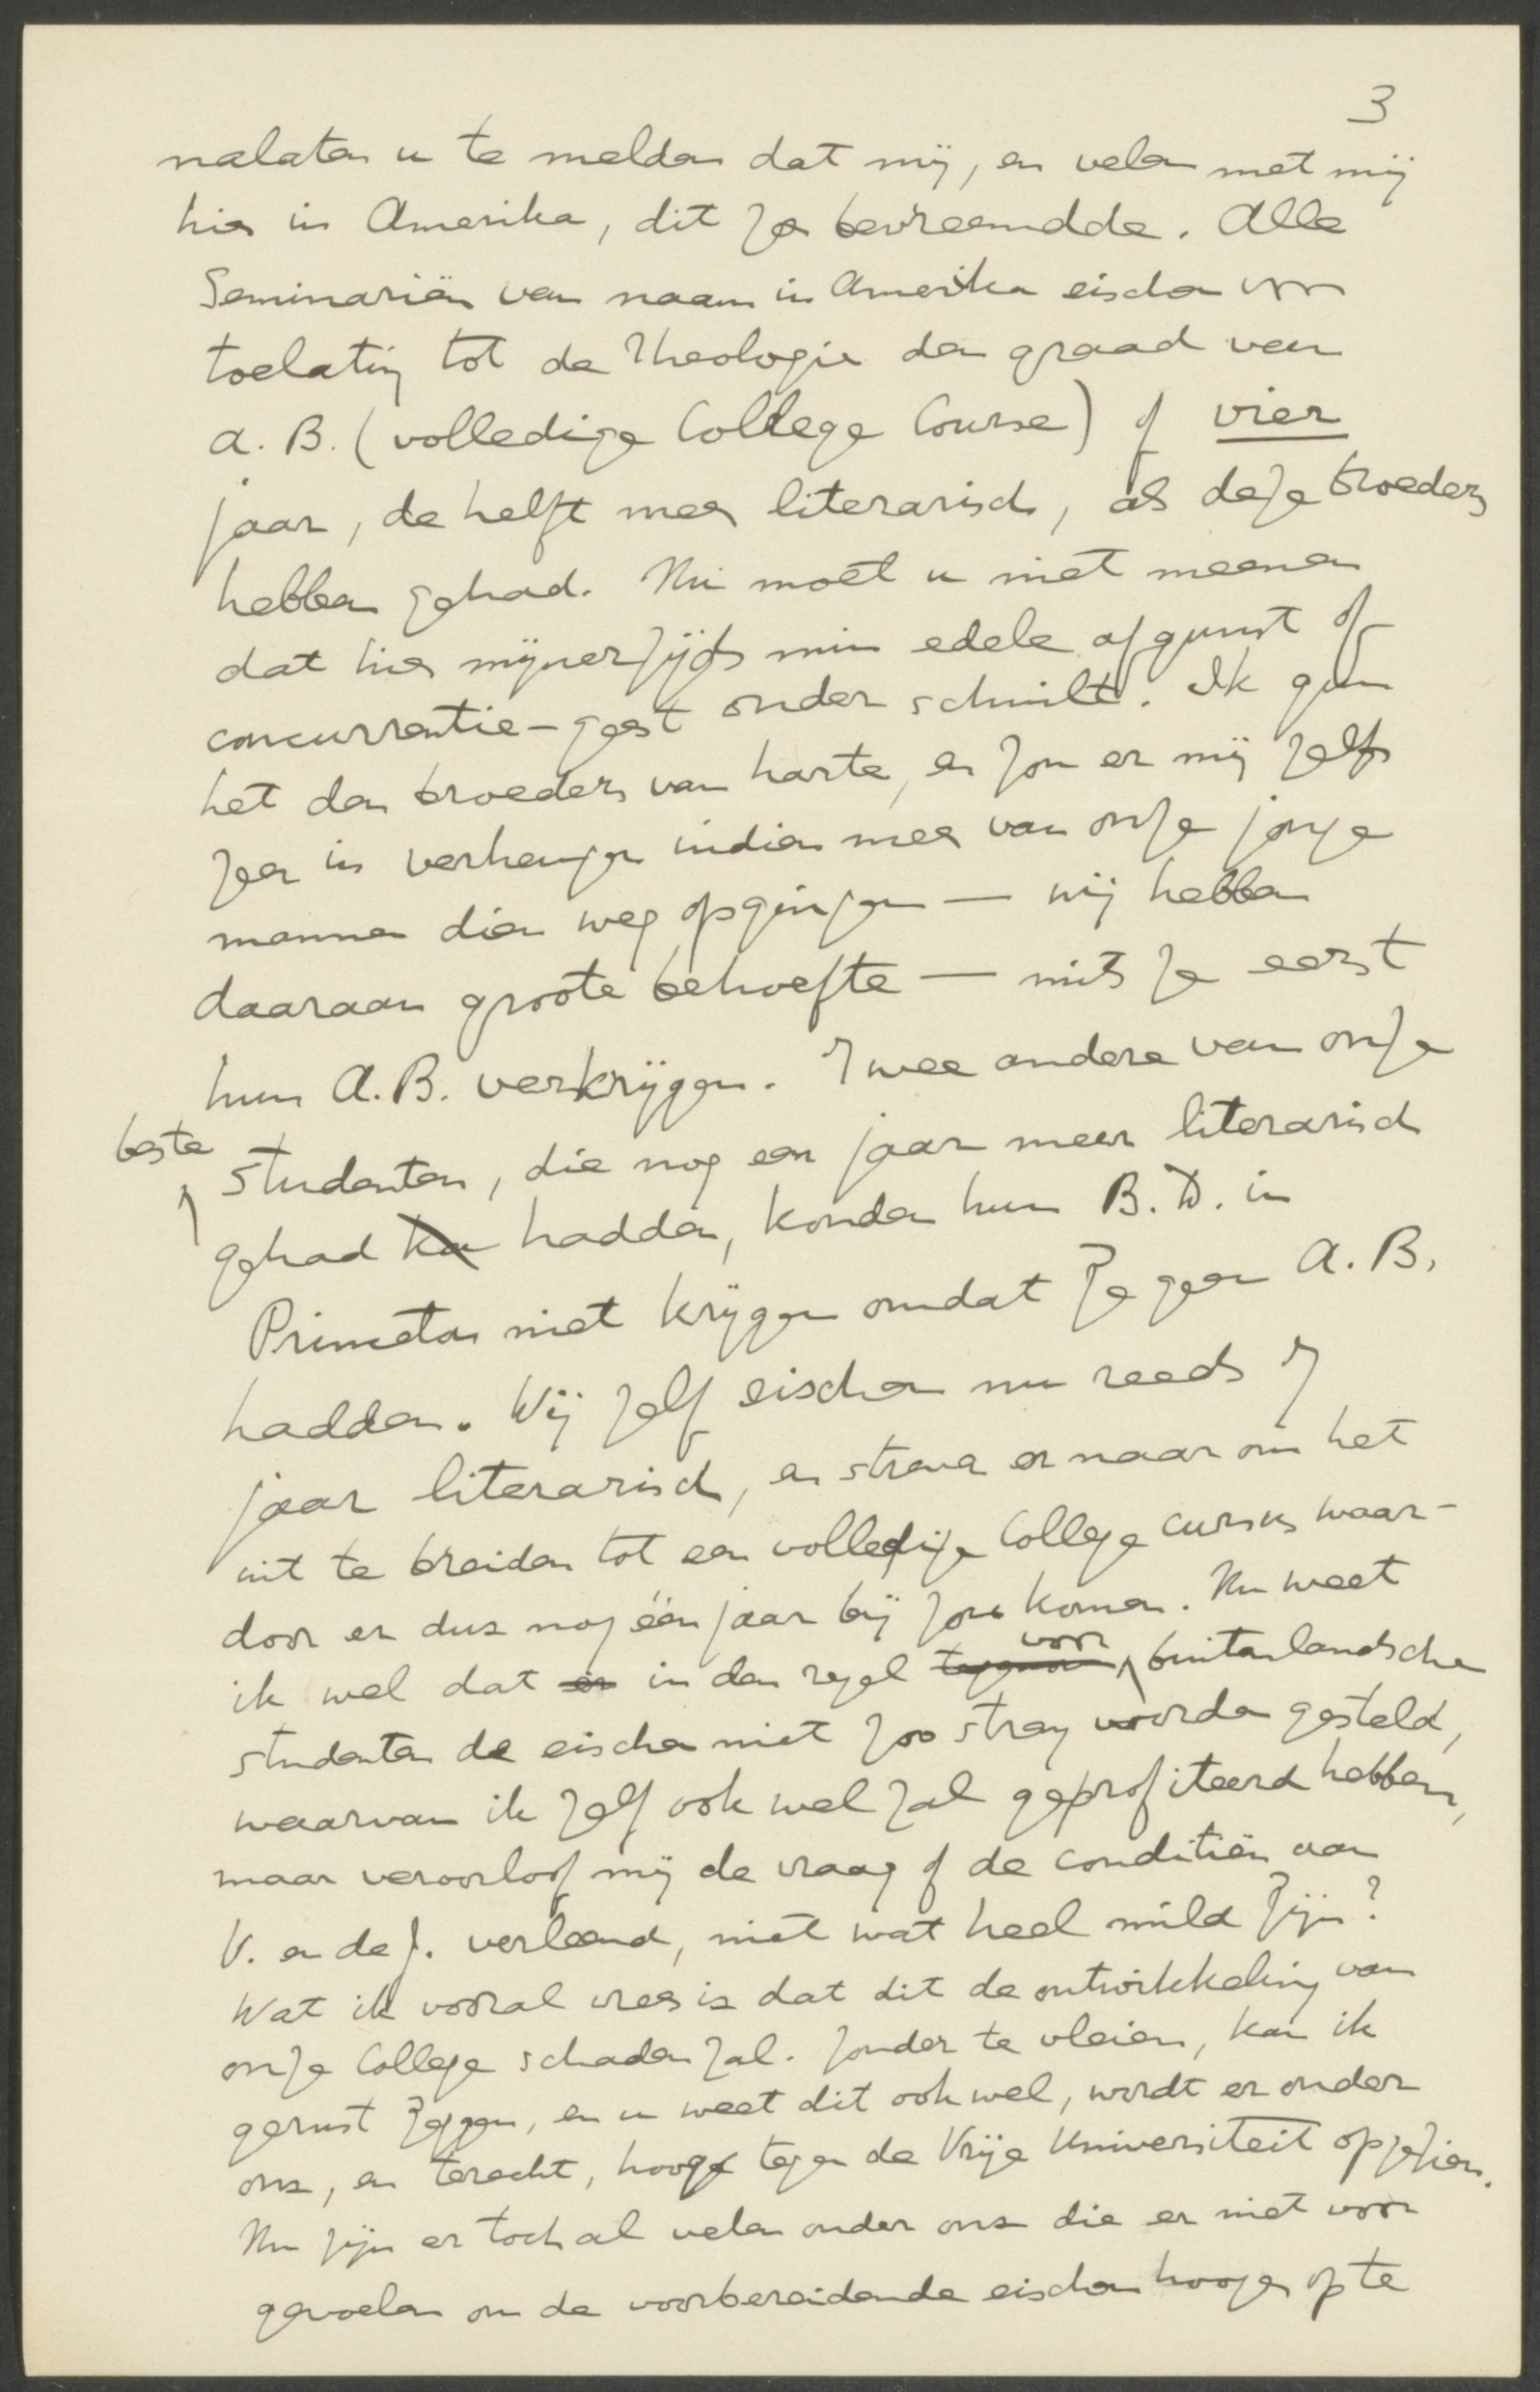 3
nalaten u te melden dat mij, en velen met mij
hier in Amerika, dit zeer bevreemdde. Alle
Seminariën van naam in Amerika eischen voor
toelating tot de Theologie den graad van
A.B. (volledige College Course) of vier
jaar, de helft meer literarisch, als deze broeders
hebben gehad. Nu moet u niet meenen
dat hier mijnerzijds min edele afgunst of
concurrentie-geest onder schuilt. Ik gun
het den broeders van harte, en zou er mij zelfs
zeer in verheugen indien meer van onze jonge
mannen dien weg opgingen — wij hebben
daaraan groote behoefte — mits ze eerst
hun A.B. verkrijgen. Twee andere van onze
beste studenten, die nog een jaar meer literarisch
gehad hadden, konden hun B.D. in
Princeton niet krijgen omdat ze geen A.B.
hadden. Wij zelf eischen nu reeds 3
jaar literarisch, en streven er naar om het
uit te breiden tot een volledige College cursus waar-
door er dus nog één jaar bij zou komen. Nu weet
ik wel dat in den regel voor buitenlandsche
studenten de eischen niet zoo streng worden gesteld,
waarvan ik zelf ook wel zal geprofiteerd hebben,
maar veroorloof mij de vraag of de conditiën aan
V. en de J. verleend, niet wat heel mild zijn?
Wat ik vooral vrees is dat dit de ontwikkeling van
onze College schaden zal. Zonder te vleien, kan ik
gerust zeggen, en u weet dit ook wel, wordt er onder
ons, en terecht, hoog tegen de Vrije Universiteit opgezien.
Nu zijn er toch al velen onder ons die er niet voor
gevoelen om de voorbereidende eischen hooger op te